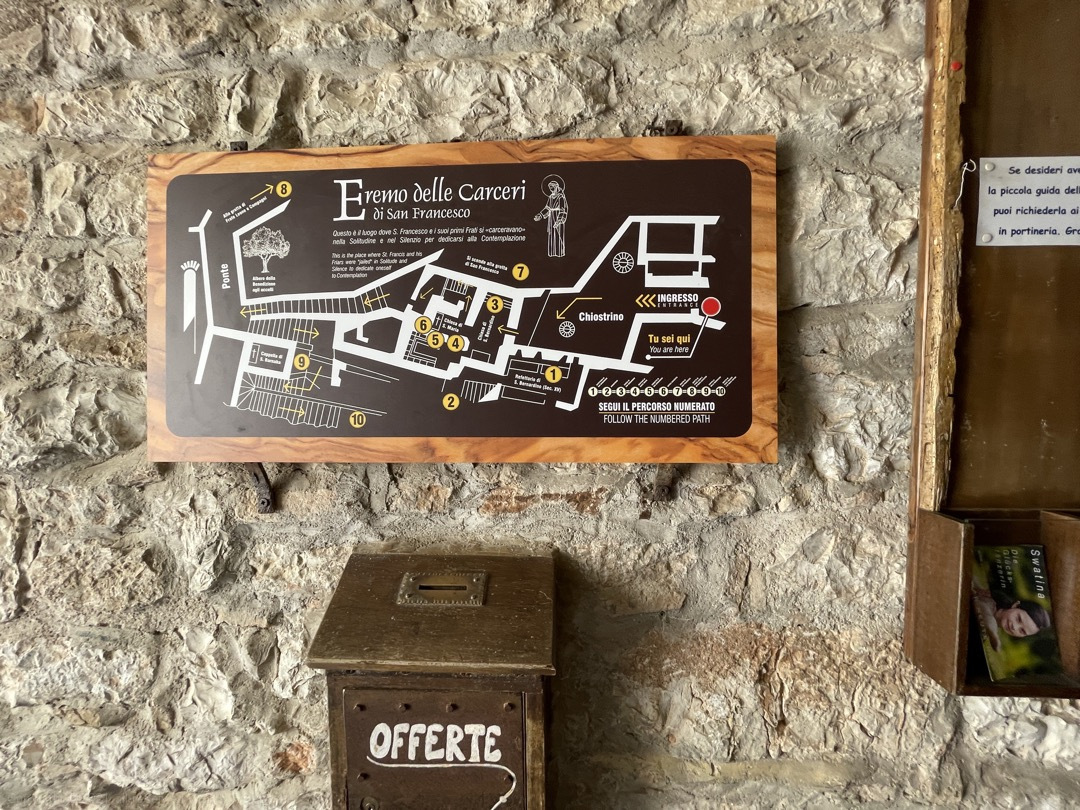 Eremo delle Carceri
di San Francesco
Questo è il luogo dove S. Francesco e i suoi primi Frati si «carceravano»
nella Solitudine e nel Silenzio per dedicarsi alla Contemplazione
This is the place where St. Francis and his
Friars were "jailed" in Solitude and
Silence to dedicate oneself
to Contemplation
8
Alla grotta di
Frate Leone e Compagni
Ponte
Albero della
Benedizione
agli uccelli
Si scende alla grotta
di San Francesco
7
3
Chiesa di
S. Maria
Chiesa di
S. Bernardino
6
5
4
Chiostrino
INGRESSO
ENTRANCE
Tu sei qui
You are here
Cappella di
S. Barnaba
9
1
Refettorio di
S. Bernardino (Sec. XV)
2
10
1 2 3 4 5 6 7 8 9 10
SEGUI IL PERCORSO NUMERATO
FOLLOW THE NUMBERED PATH
Se desideri ave
la piccola guida dell
puoi richiederla ai
in portineria. Gra
Swatina
OFFERTE